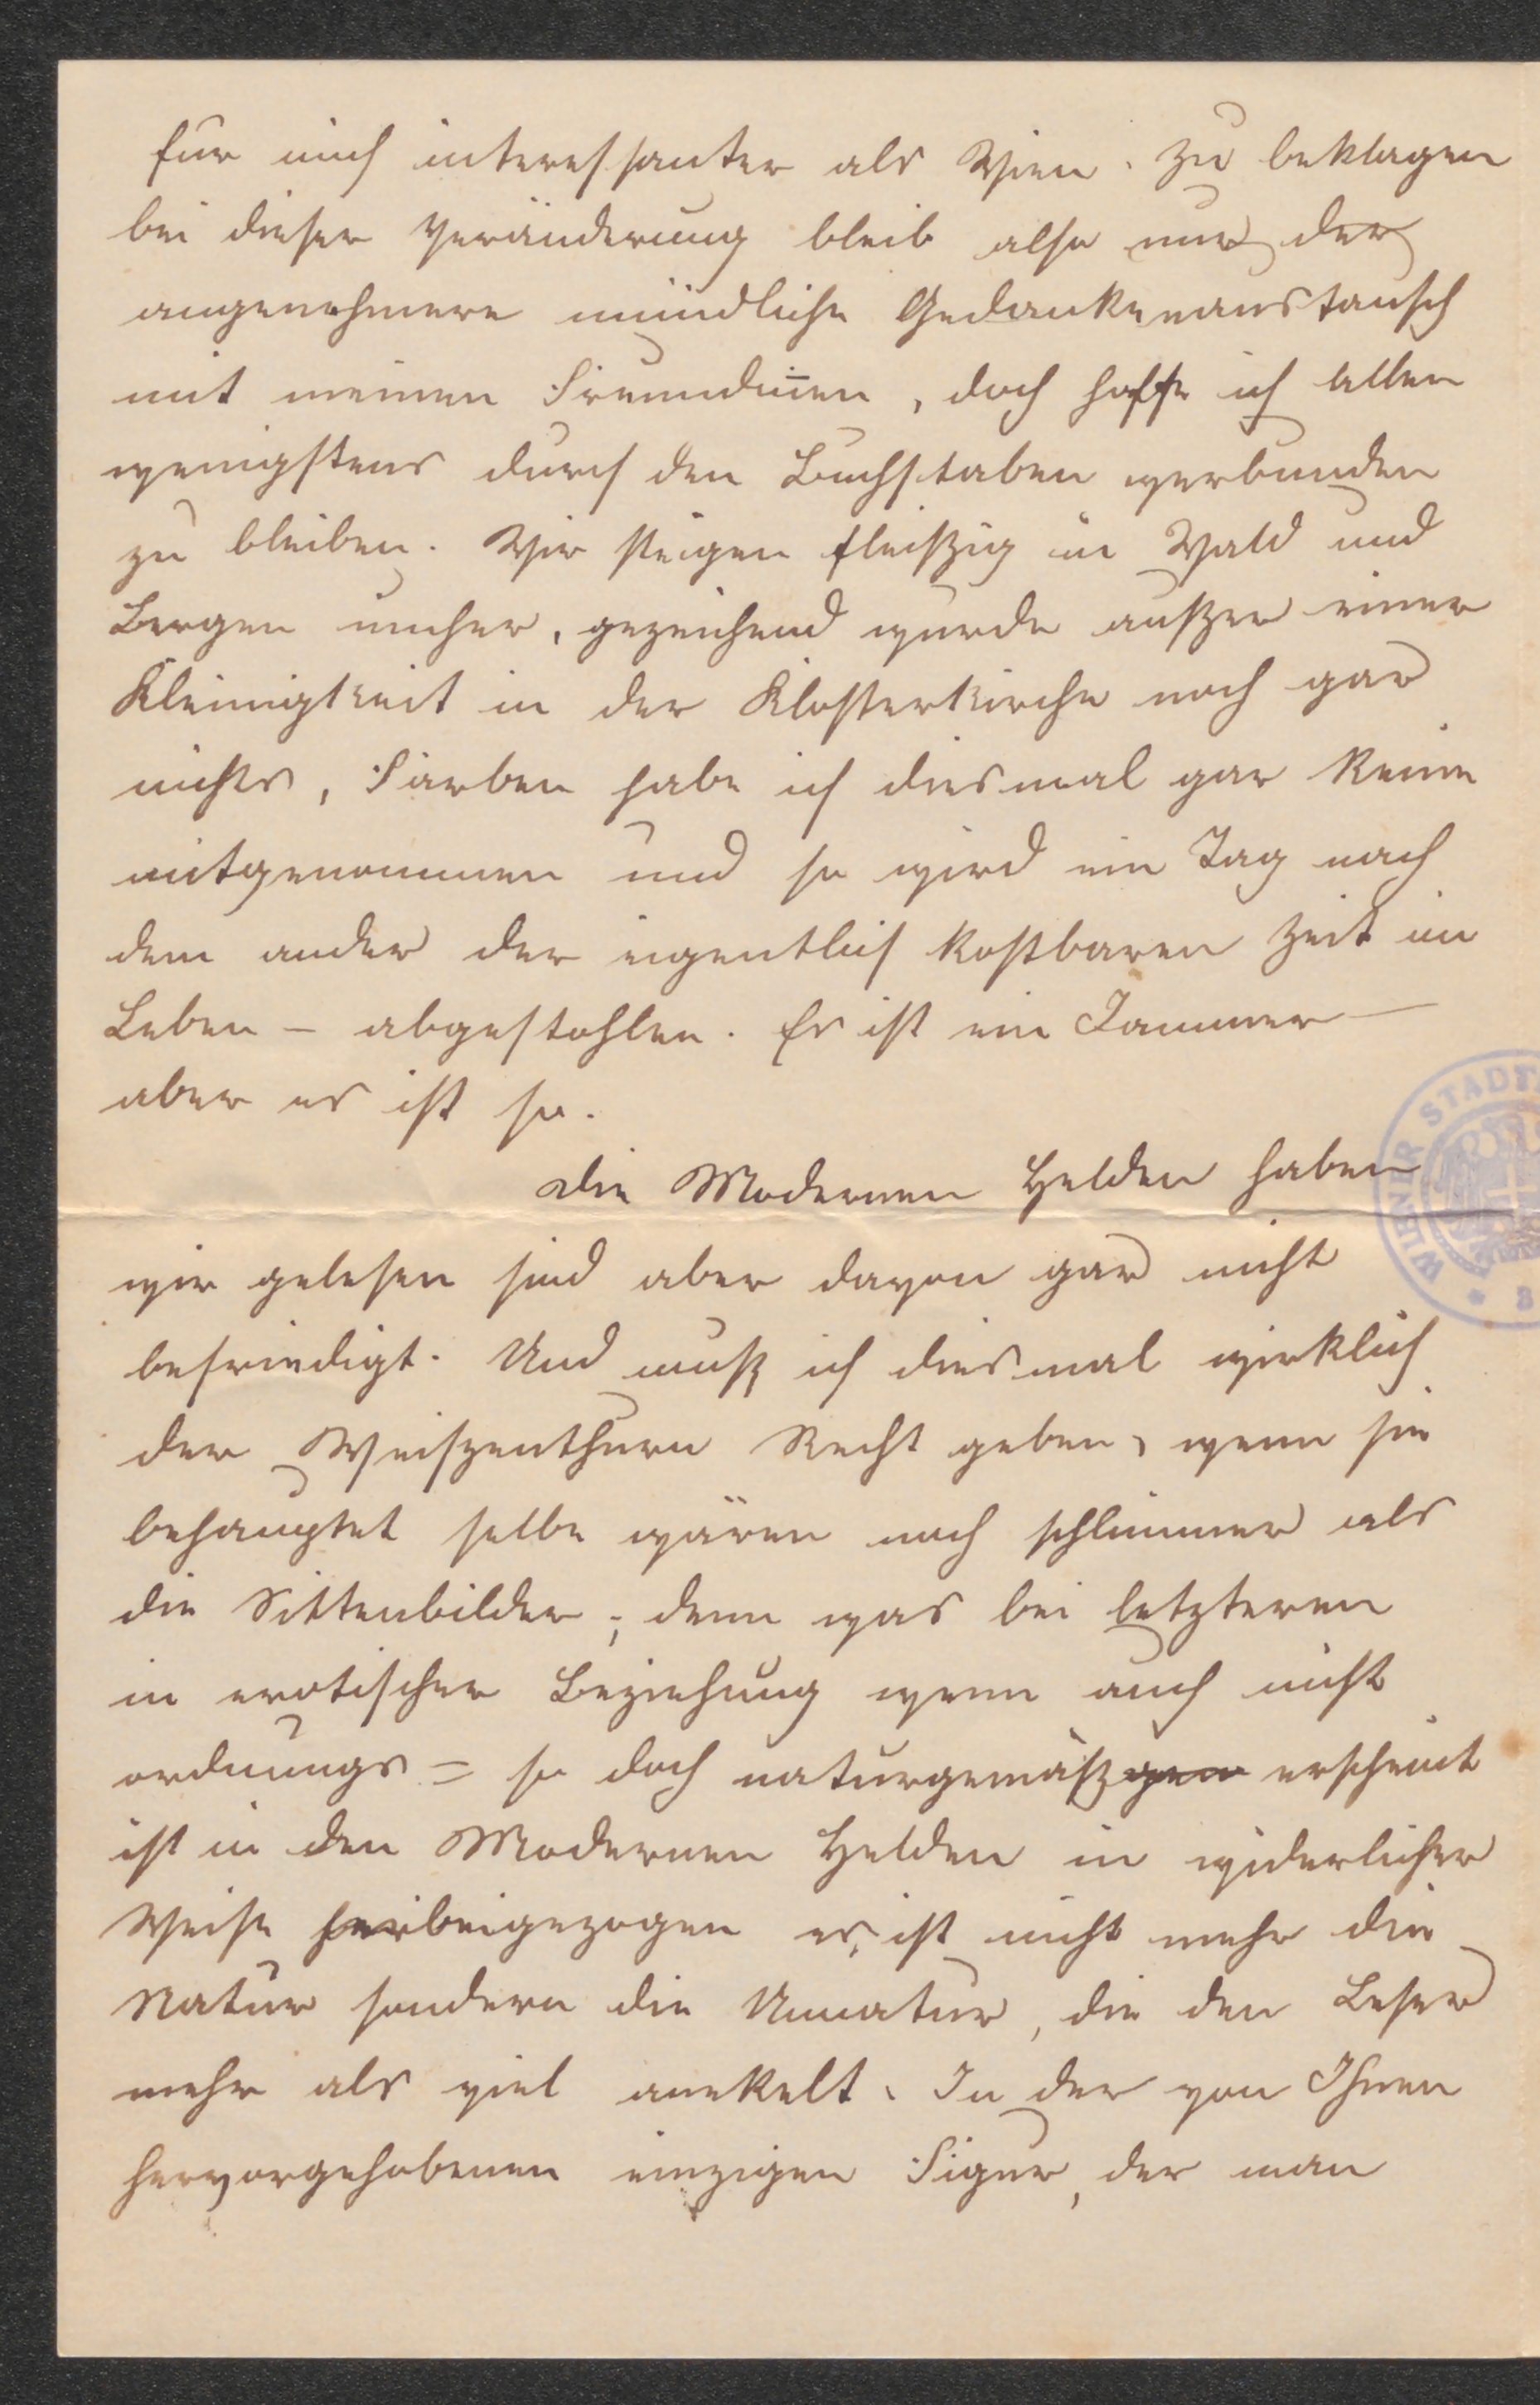 für mich interessanter als Wien. Zu beklagen
bei dieser Veränderung bleib also nur der
angenehmere mündliche Gedankenaustausch
mit meinen Freundin̄en, doch hoffe ich Allen
wenigstens durch den Buchstaben verbunden
zu bleiben. Wir steigen fleißig in Wald und
Bergen umher, gezeichend wurde außer einer
Kleinigkeit in der Klosterkirche noch gar
nichts, Farben habe ich diesmal gar keine
mitgenommen und so wird ein Tag nach
dem ander der eigentlich kostbaren Zeit im
Leben – abgestohlen. Es ist ein Jammer –
aber es ist so.
Die Modernen Helden haben
wir gelesen sind aber davon gar nicht
befriedigt. Und muß ich diesmal wirklich
der Weißenthurn Recht geben, wenn sie
behauptet selbe wären noch schlimmer als
die Sittenbilder; denn was bei letzteren
in erotischer Beziehung wenn auch nicht
ordnungs= so doch naturgemäß erscheint
ist in den Modernen Helden in widerlicher
Weise herbeigezogen es ist nicht mehr die
Natur sondern die Unnatur, die den Leser
mehr als viel anekelt. In der von Ihnen
hervorgehobenen einzigen Figur, der man
WIENER STADT